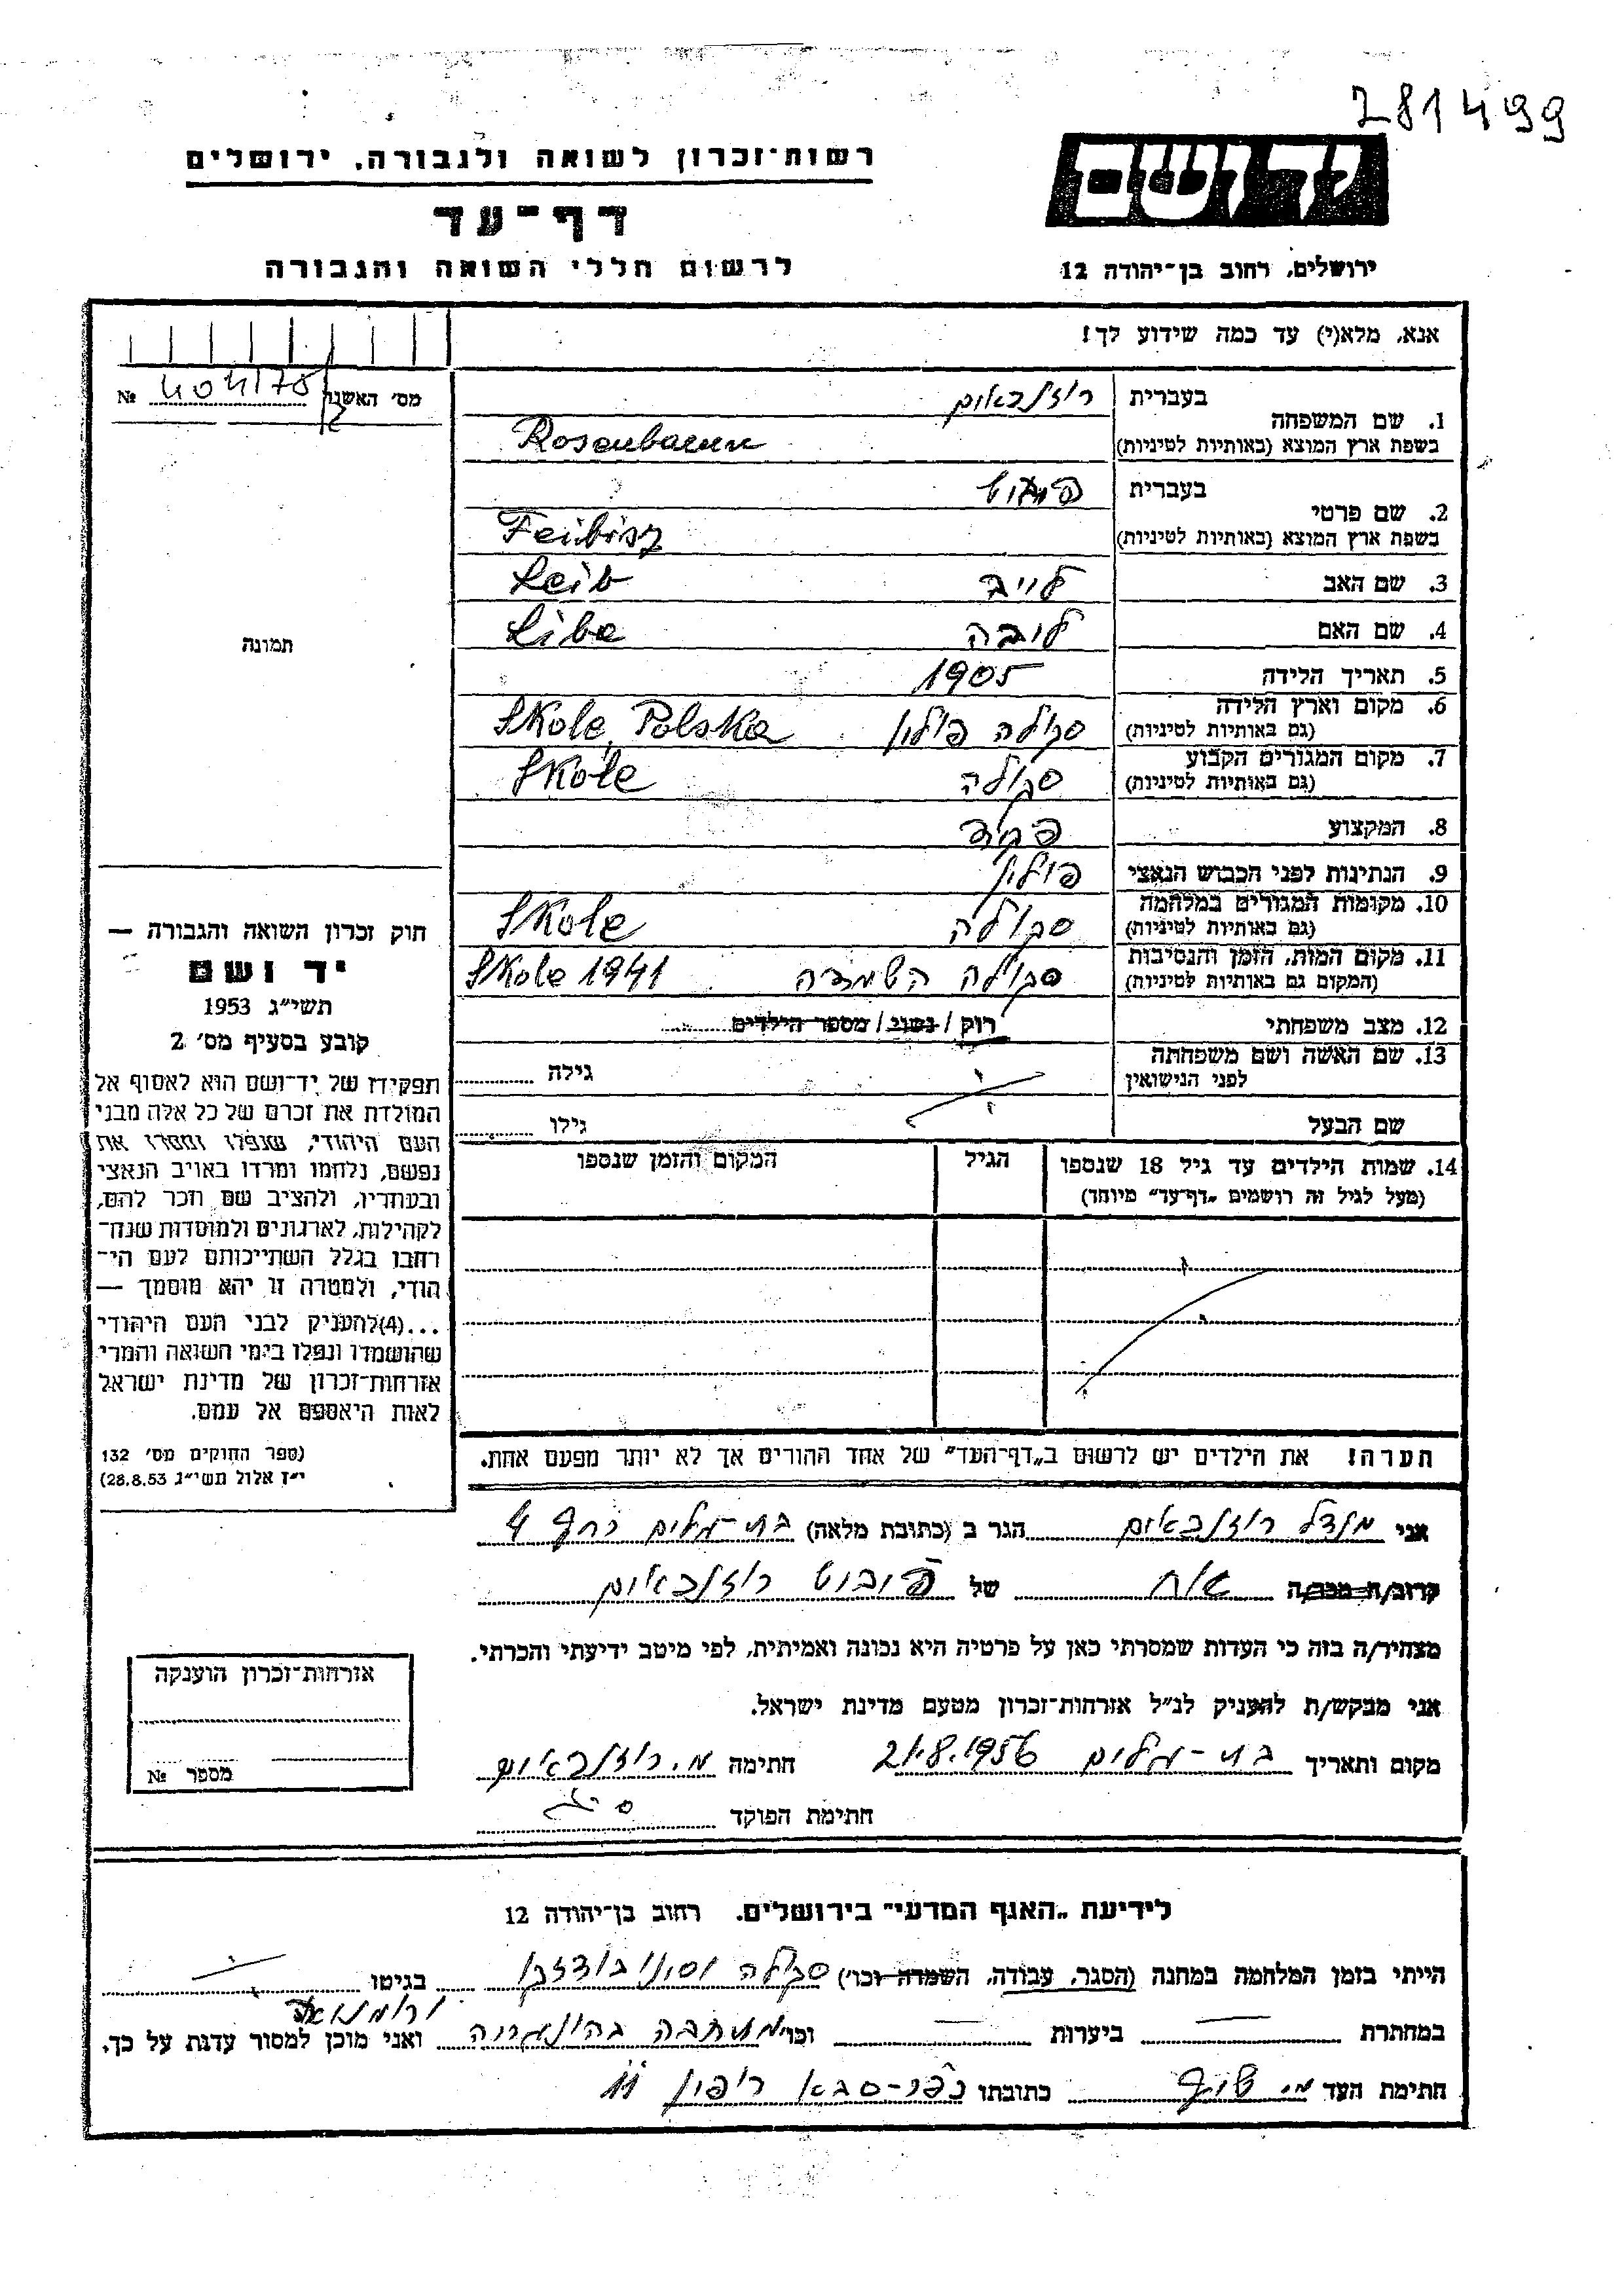 281499
יד ושם
רשות־זכרון לשואה ולגבורה, ירושלים
דף־עד
לרשום חללי השואה והגבורה
ירושלים, רחוב בן־יהודה 12
אנא, מלא(י) עד כמה שידוע לך!
מס׳ האשנב № 404178/2
1. שם המשפחה בעברית רוזנבאום
בשפת ארץ המוצא (באותיות לטיניות) Rosenbaum
2. שם פרטי בעברית
בשפת ארץ המוצא (באותיות לטיניות) Feibisz
3. שם האב לייב Leib
4. שם האם ליבה Liba
5. תאריך הלידה 1905
6. מקום וארץ הלידה (גם באותיות לטיניות) סקולה פולין Skole, Polska
7. מקום המגורים הקבוע (גם באותיות לטיניות) סקולה Skole
8. המקצוע פקיד
9. הנתינות לפני הכבוש הנאצי פולין
10. מקומות המגורים במלחמה (גם באותיות לטיניות) סקולה Skole
11. מקום המות, הזמן והנסיבות (המקום גם באותיות לטיניות) סקולה השמדה Skole 1941
12. מצב משפחתי רוק / נשוי / מספר הילדים
13. שם האשה ושם משפחתה לפני הנישואין גילה
שם הבעל גילו
14. שמות הילדים עד גיל 18 שנספו הגיל המקום והזמן שנספו
(מעל לגיל זה רושמים „דף־עד” מיוחד)
הערה! את הילדים יש לרשום ב„דף־העד” של אחד ההורים אך לא יותר מפעם אחת.
תמונה
חוק זכרון השואה והגבורה —
יד ושם
תשי״ג 1953
קובע בסעיף מס׳ 2
תפקידו של יד־ושם הוא לאסוף אל
המולדת את זכרם של כל אלה מבני
העם היהודי, שנפלו ומסרו את
נפשם, נלחמו ומרדו באויב הנאצי
ובעוזריו, ולהציב שם וזכר להם,
לקהילות, לארגונים ולמוסדות שנח־
רבו בגלל השתייכותם לעם הי־
הודי, ולמטרה זו יהא מוסמך —
...(4)להעניק לבני העם היהודי
שהושמדו ונפלו בימי השואה והמרי
אזרחות־זכרון של מדינת ישראל
לאות היאספם אל עמם.
(ספר החוקים מס׳ 132
י״ז אלול תשי״ג 28.8.53)
אני מנדל רוזנבאום הגר ב (כתובת מלאה) בת־גלים רחף 4
קרוב/ה מכר/ה אח של פיבוש רוזנבאום
מצהיר/ה בזה כי העדות שמסרתי כאן על פרטיה היא נכונה ואמיתית, לפי מיטב ידיעתי והכרתי.
אני מבקש/ת להעניק לנ״ל אזרחות־זכרון מטעם מדינת ישראל.
מקום ותאריך בת־גלים 21.8.1956 חתימה מ. רוזנבאום
חתימת הפוקד
אזרחות־זכרון הוענקה
מספר №
לידיעת „האגף המדעי” בירושלים, רחוב בן־יהודה 12
הייתי בזמן המלחמה במחנה (הסגר, עבודה, השמדה וכו׳) סקולה בגיטו
ורומניה
במחתרת ביערות וכו׳ בהונגריה ואני מוכן למסור עדות על כך.
חתימת העד מ. כתובתו כפר־סבא 11